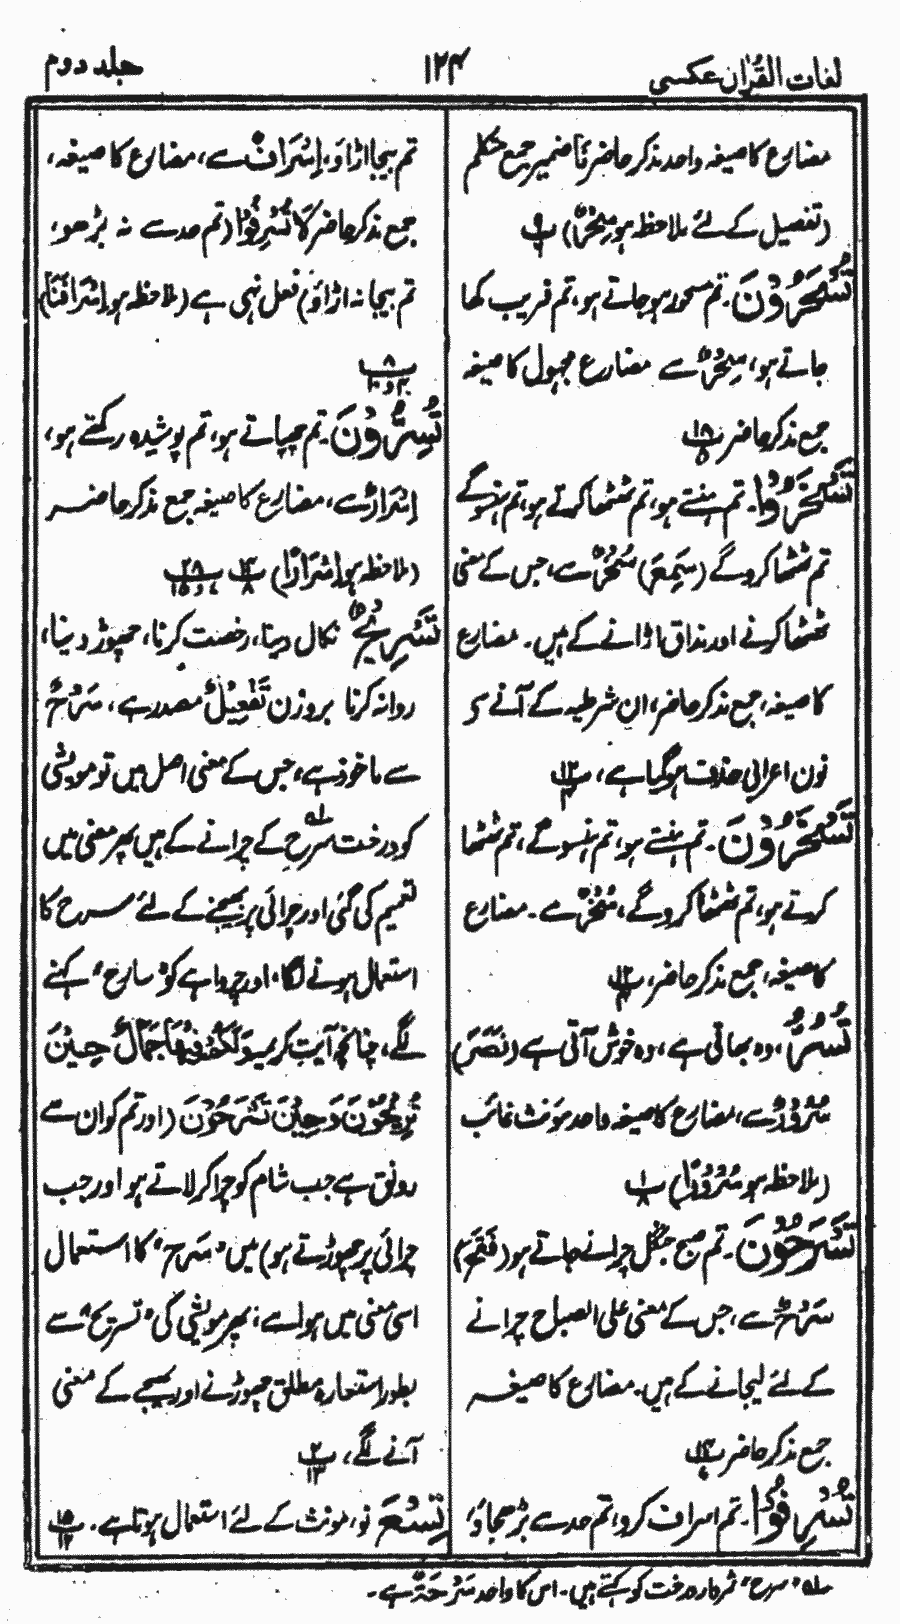 لغات القرآن عکسی
۱۲۴
جلد دوم
مضارع کا صیغہ واحد مذکر حاضر نَا ضمیر جمع متکلم
(تفصیل کے لئے ملاحظہ ہو سِحْرٌ)
تُسْحَرُوْنَ۔ تم مسحور ہو جاتے ہو، تم فریب کھا
جاتے ہو، سِحْرٌ سے مضارع مجہول کا صیغہ
جمع مذکر حاضر ۱۸ ۵
تَسْخَرُوْا۔ تم ہنستے ہو، تم ٹھٹھا کرتے ہو، تم ہنسو گے
تم ٹھٹھا کرو گے (سَمِعَ) سُخْرٌ سے، جس کے معنی
ٹھٹھا کرنے اور مذاق اڑانے کے ہیں۔ مضارع
کا صیغہ، جمع مذکر حاضر، ان شرطیہ کے آنے سے
نون اعرابی حذف ہو گیا ہے، ۱۲
تَسْخَرُوْنَ۔ تم ہنستے ہو، تم ہنسو گے، تم ٹھٹھا
کرتے ہو، تم ٹھٹھا کرو گے، سُخْرٌ سے۔ مضارع
کا صیغہ، جمع مذکر حاضر، ۱۲
تَسُرُّ، وہ بھاتی ہے، وہ خوش آتی ہے (نَصَرَ)
سُرُوْرٌ سے، مضارع کا صیغہ واحد مؤنث غائب
(ملاحظہ ہو سُرُوْرًا) ۱ ۸
تَسْرَحُوْنَ۔ تم صبح جنگل چرانے جاتے ہو (فَتَحَ)
سَرْحٌ سے، جس کے معنی علی الصباح چرانے
کے لئے لیجانے کے ہیں۔ مضارع کا صیغہ
جمع مذکر حاضر ۱۴
تُسْرِفُوْا۔ تم اسراف کرو، تم حد سے بڑھ جاؤ،
تم بیجا اڑاؤ، اِسْرَافٌ سے، مضارع کا صیغہ،
جمع مذکر حاضر کَا تُسْرِفُوْا (تم حد سے نہ بڑھو،
تم بیجا نہ اڑاؤ) فعل نہی ہے (ملاحظہ ہو اِسْرَافَنَا)
۸
تُسِرُّوْنَ۔ تم چھپاتے ہو، تم پوشیدہ رکھتے ہو،
اِسْرَارٌ سے، مضارع کا صیغہ جمع مذکر حاضر
(ملاحظہ ہو اِسْرَارًا) ۱۴ ۸ ۲۸
تَسْرِیْحٌ نکال دینا، رخصت کرنا، چھوڑ دینا،
روانہ کرنا بروزن تَفْعِیْلٌ مصدر ہے، سَرْحٌ
سے ماخوذ ہے، جس کے معنی اصل میں تو مویشی
کو درخت سرح کے چرانے کے ہیں پھر معنی میں
تعمیم کی گئی اور چرائی پر بھیجنے کے لئے سرح کا
استعمال ہونے لگا، اور چرواہے کو "سارح" کہنے
لگے، چنانچہ آیت کریمہ وَلَكُمْ فِيْهَا جَمَالٌ حِيْنَ
تُرِيْحُوْنَ وَحِيْنَ تَسْرَحُوْنَ (اور تم کو ان سے
رونق ہے جب شام کو چرا کر لاتے ہو اور جب
چرائی پر چھوڑتے ہو) میں "سَرْح" کا استعمال
اسی معنی میں ہوا ہے، پھر مویشی کی "تسریح" سے
بطور استعارہ مطلق چھوڑنے اور بھیجنے کے معنی
آنے لگے، ۲ ۱۳
تِسْعَ نو، مؤنث کے لئے استعمال ہوتا ہے۔ ۱۵ ۱۲
سلہ "سرح" ثمردار درخت کو کہتے ہیں۔ اس کا واحد سَرْحَۃٌ ہے۔